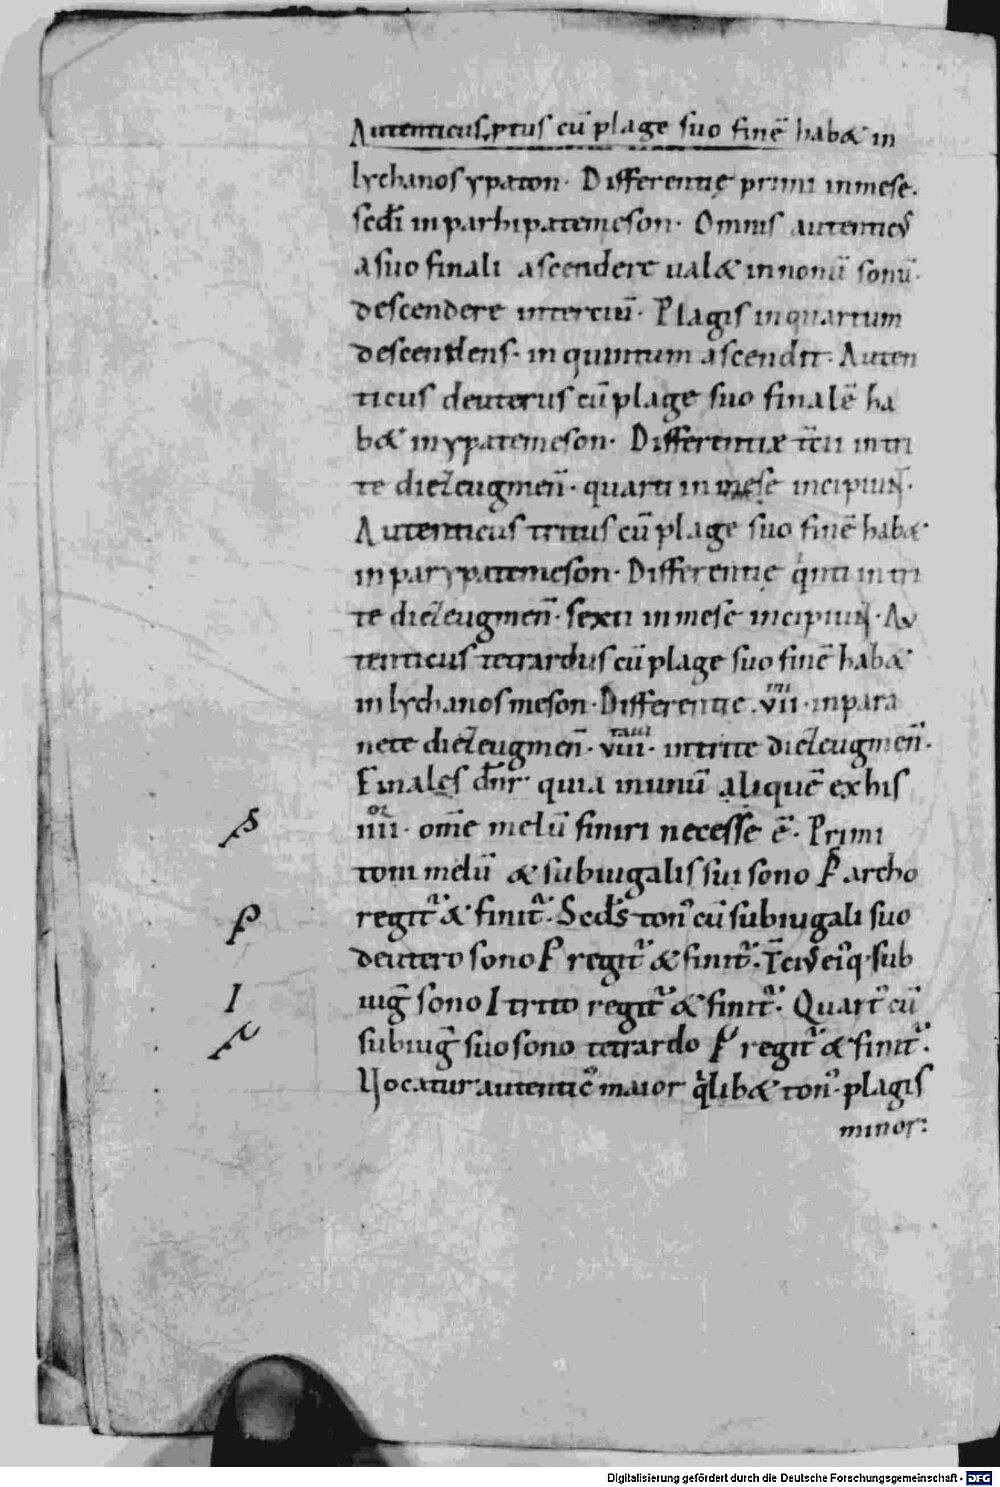 Autenticus ꝓtus cū plage suo finē habæ in
lychanos ypaton· Differentię primi in mese·
scđi in parhipatemeson· Omnis autenticus
a suo finali ascendere ualæ in nonū sonū·
descendere in terciū· Plagis in quartum
descendens· in quintum ascendit· Auten
ticus deuterus cū plage suo finalē ha
bæ in ypatemeson· Differentiæ t̄cii in tri
te diezeugmen̄· quarti in mese incipiunt·
Autenticus tritus cū plage suo finē habæ
in parypatemeson· Differentię qinti in tri
te diezeugmen̄· sexti in mese incipiunt· Au
tenticus tetrardus cū plage suo finē habæ
in lychanos meson· Differentie ·vii· in para
mi
nete diezeugmen̄· viii· in trite diezeugmen̄·
taui
Finales dn̄r· quia in unū aliquē ex his
iiii· om̄e melū finiri necesse ē· Primi
or
toni melū & subiugalis sui sono archo
regit᷑ & finit᷑· Scd̄s ton᷒ cū subiugali suo
deutero sono regit᷑ & finit᷑· T̄cius eiq· sub
iug̅ sono I trito regit᷑ & finit᷑· Quart᷒ cū
subiug̅ suo sono tetrardo regit᷑ & finit᷑·
Uocatur autentic᷒ maior qlibæ ton᷒· plagis
minor:
I
Digitalisierung gefördert durch die Deutsche Forschungsgemeinschaft - DFG